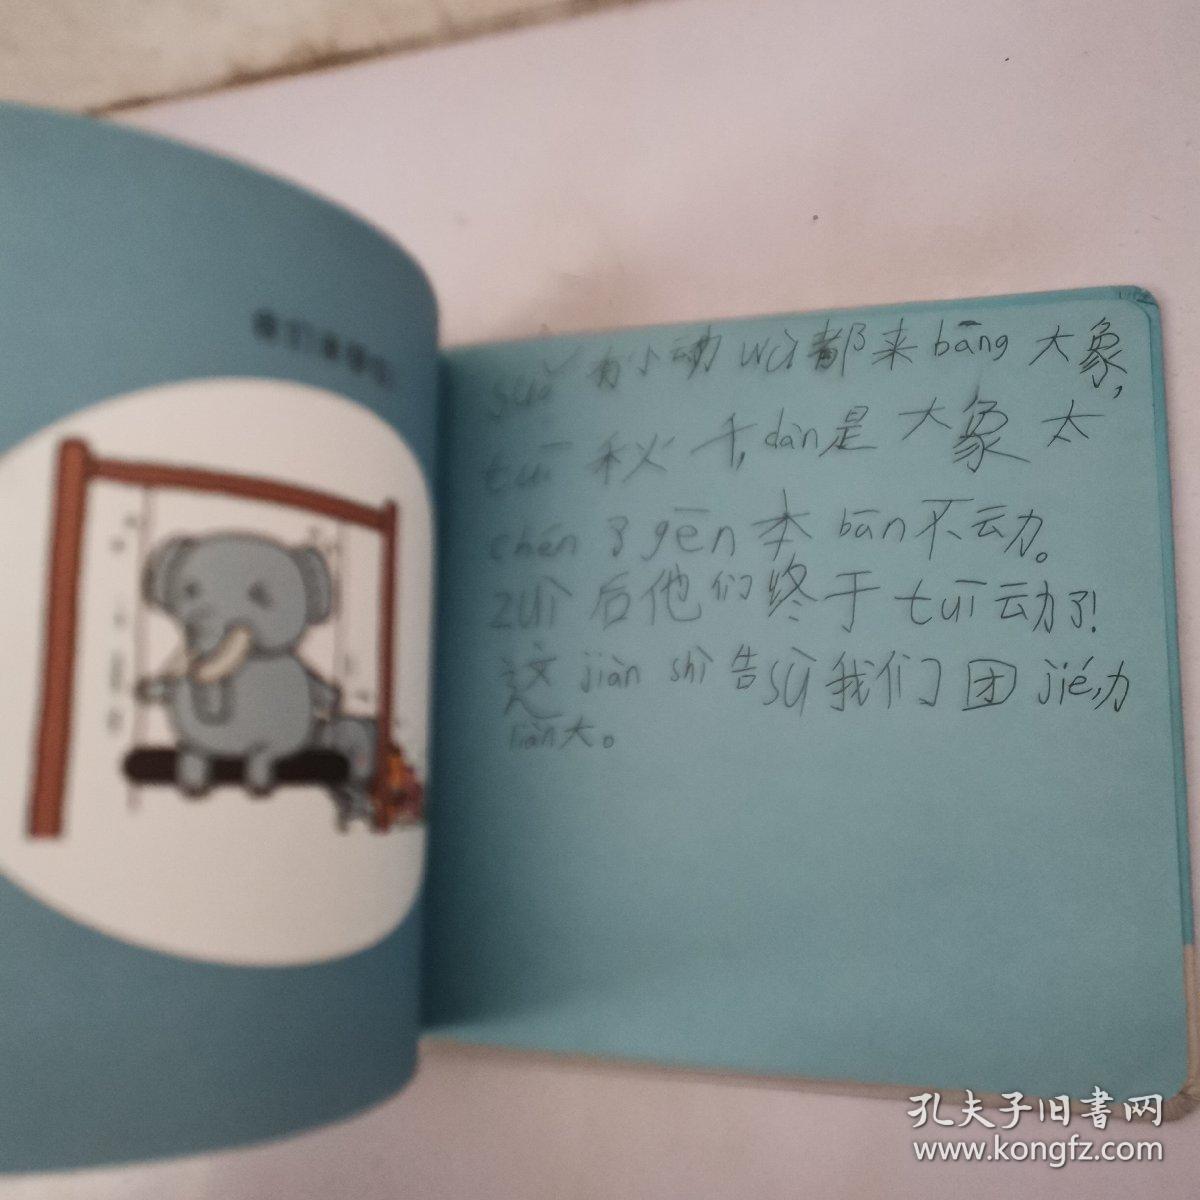 suǒ 有小动 wù 都来 bāng 大象,
tuī 秋千, dàn 是大象太
chén 了 gēn 本 bān 不动。
zuì 后他们终于 tuī 动了!
这 jiàn shì 告 sù 我们团 jié 力
liàn 大。
孔夫子旧书网
www.kongfz.com